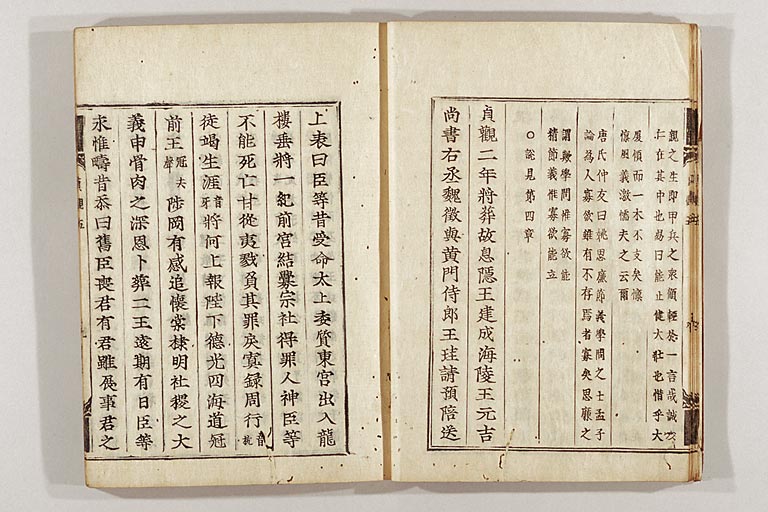 之生即甲兵之衆頓輕於一言戒誠
仁在其中也易曰能止健大壯也惜乎大
厦傾而一木不支矣懍
懍風義激懦夫之云爾
唐氏仲友曰姚思廉節義學問之士孟子
論爲人寡欲雖有不存焉者寡矣思廉之
謂歟學問惟寡欲能
精節義惟寡欲能立
○說見第四章
貞觀二年將葬故息隱王建成海陵王元吉
尚書右丞魏徵與黃門侍郎王珪請預陪送
上表曰臣等昔受命太上委質東宮出入龍
樓垂將一紀前宮結釁宗社得罪人神臣等
不能死亡甘從夷戮負其罪戾寘錄周行音杭
徒竭生涯音牙將何上報陛下德光四海道冠
前王冠去聲陟岡有感追懷棠棣明社稷之大
義申骨肉之深恩卜葬二王遠期有日臣等
永惟疇昔忝曰舊臣喪君有君雖展事君之
貞觀五